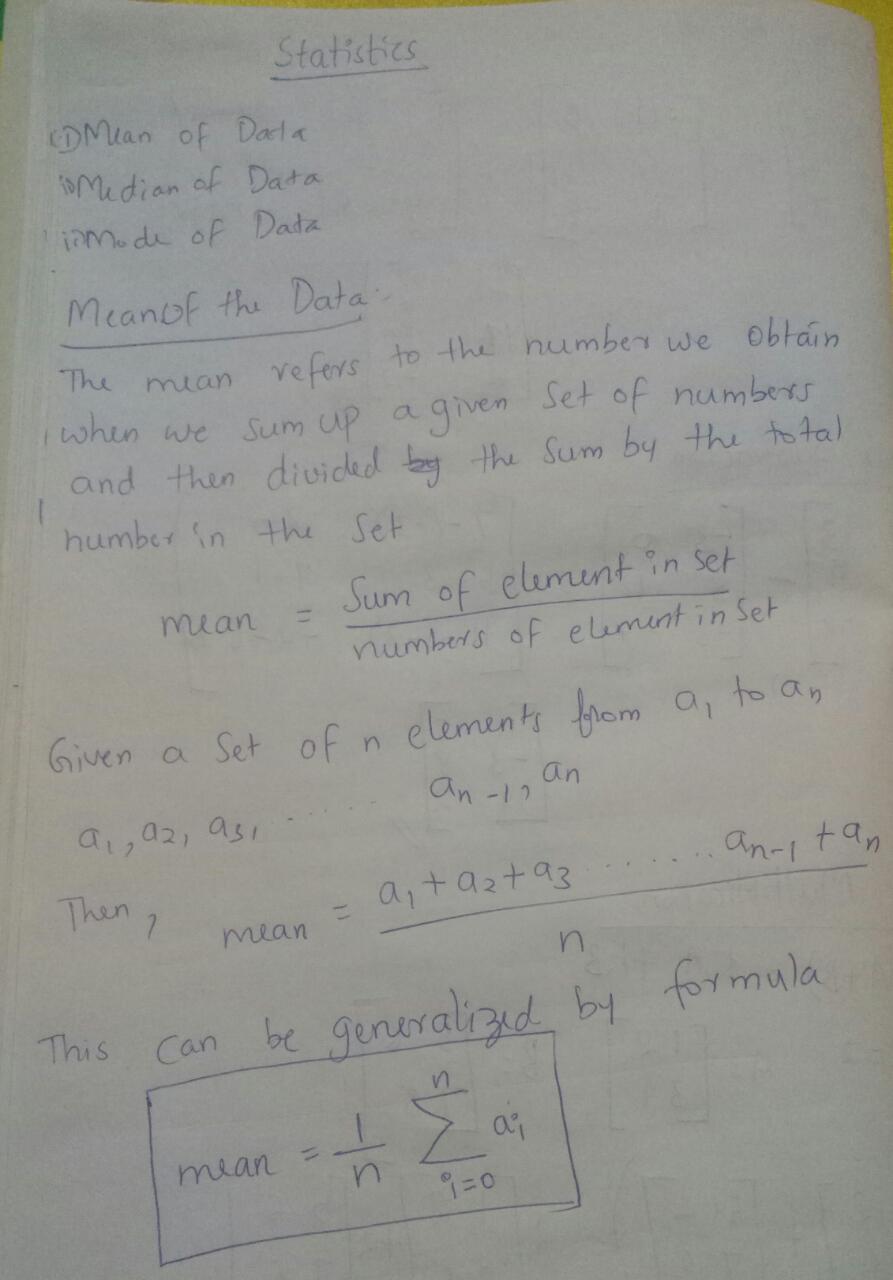 Statistics
(i) Mean of Data
ii) Median of Data
iii) Mode of Data
Mean of the Data:-
The mean refers to the number we obtain
when we sum up a given set of numbers
and then divided by the sum by the total
number in the set
mean = Sum of element in set
numbers of element in set
Given a set of n elements from a₁ to aₙ
a₁, a₂, a₃, ........ aₙ₋₁, aₙ
Then, mean = a₁ + a₂ + a₃ ....... aₙ₋₁ + aₙ
n
This can be generalized by formula
mean = 1/n n∑i=0 aᵢ